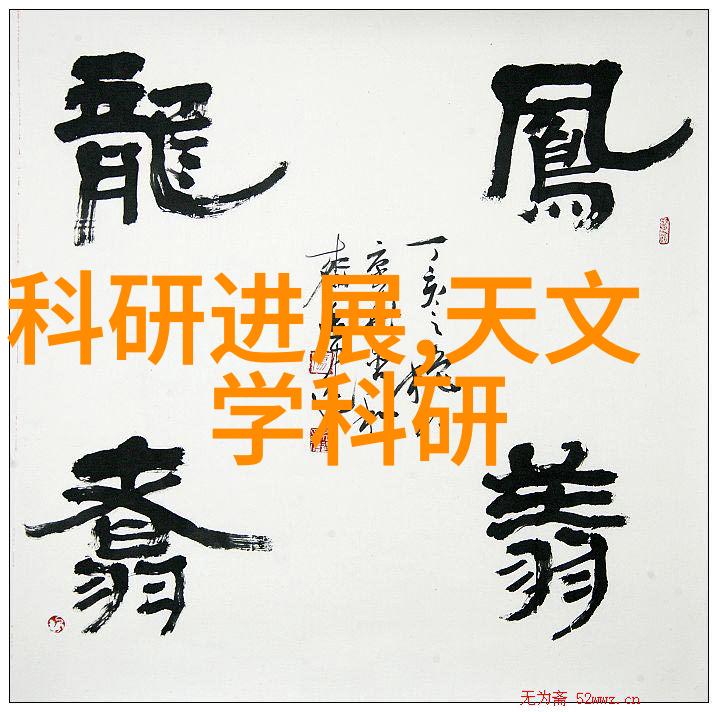 鳳翔
龍翥
丁亥之
科研进展,天文
学科研
无为斋 52wwz.cn